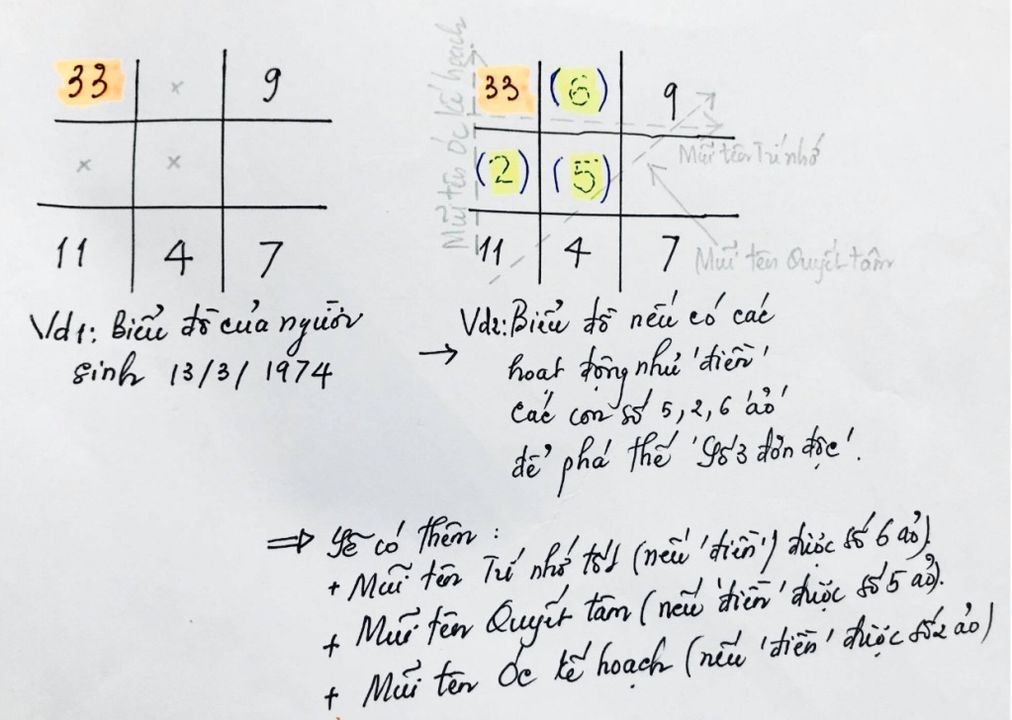 33 × 9
× ×
11 4 7
Vd1: Biểu đồ của người
sinh 13/3/1974
Mũi tên Óc kế hoạch
33 (6) 9
Mũi tên Trí nhớ
(2) (5)
11 4 7
Mũi tên Quyết tâm
→ Vd2: Biểu đồ nếu có các
hoạt động như 'điền'
các con số 5, 2, 6 'ảo'
để phá thế 'Số 3 đơn độc'.
⇒ Sẽ có thêm :
+ Mũi tên Trí nhớ tốt (nếu 'điền') được số 6 ảo).
+ Mũi tên Quyết tâm (nếu 'điền' được số 5 ảo).
+ Mũi tên Óc kế hoạch (nếu 'điền' được số 2 ảo)